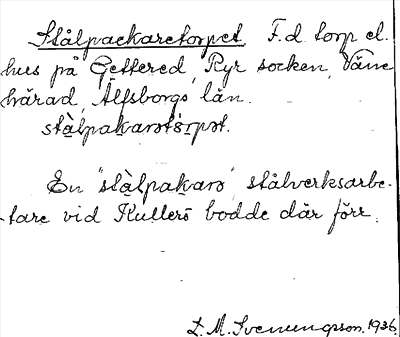 Stålpackaretorpet. F.d. torp el.
hus på Gettered, Ryr socken, Väne
härad, Älfsborgs län.
stàlpakarotórpot.
En "stàlpakaro", stålverksarbe-
tare vid Kullerö bodde där förr.
L. M. Svenungsson. 1936.